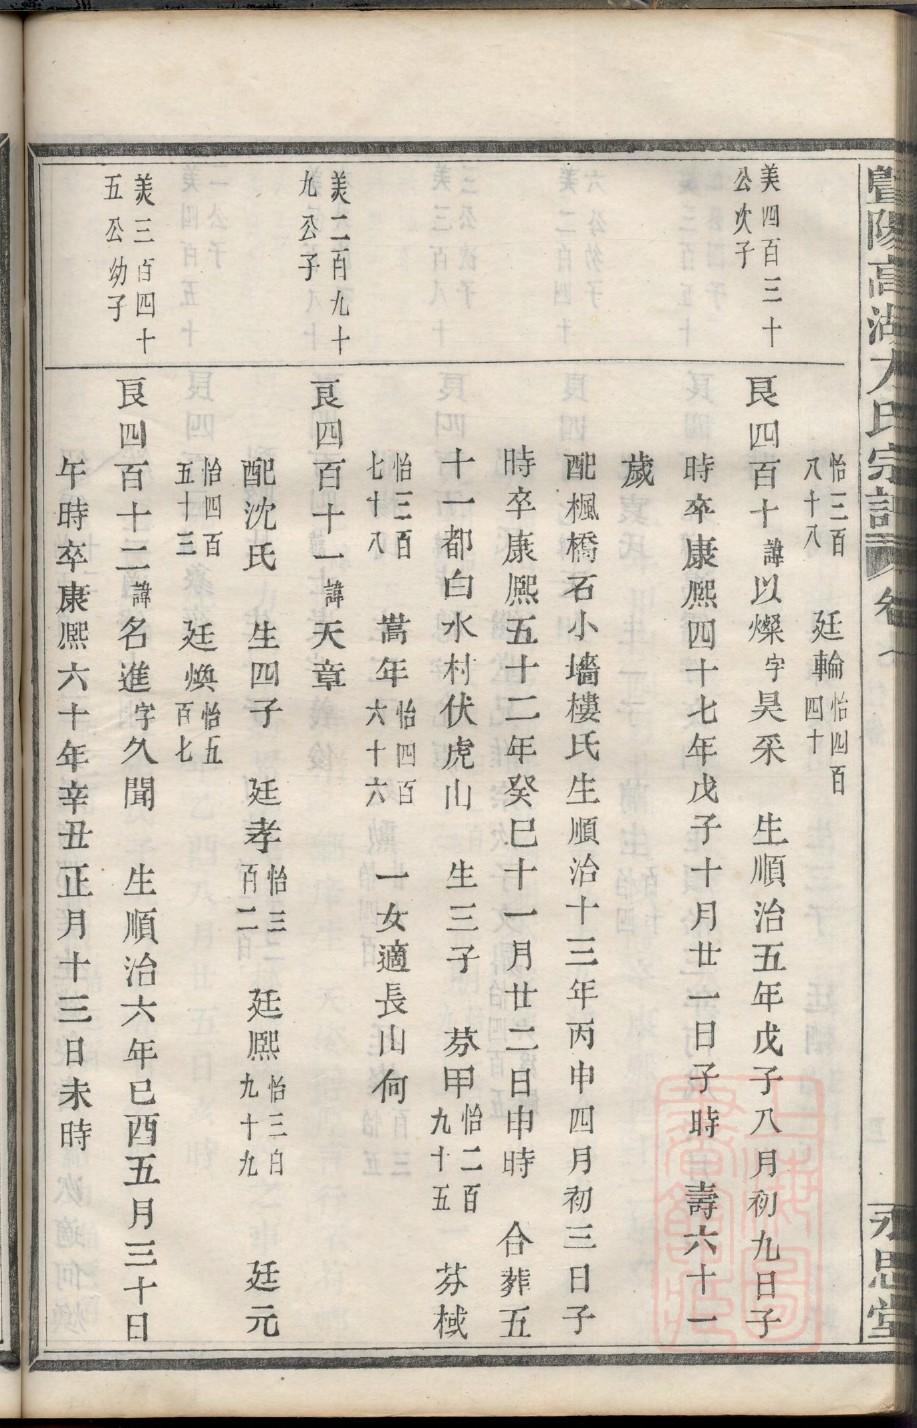 暨陽高湖方氏宗譜 卷
永思堂
怡三百八十八 廷輪怡四百四十
美四百三十公次子
艮四百十諱以燦字昊采 生順治五年戊子八月初九日子
時卒康熙四十七年戊子十月廿一日子時 壽六十一
歲
配楓橋石小墻樓氏生順治十三年丙申四月初三日子
時卒康熙五十二年癸巳十一月廿二日申時 合葬五
十一都白水村伏虎山 生三子 芬甲怡二百九十五 芬棫
怡三百七十八 嵩年怡四百六十六 一女適長山何
美二百九十九公子
艮四百十一諱天章
配沈氏 生四子 廷孝怡三百二 廷熙怡三百九十九 廷元
怡四百五十三 廷煥怡五百七
美三百四十五公幼子
艮四百十二諱名進字久聞 生順治六年巳酉五月三十日
午時卒康熙六十年辛丑正月十三日未時